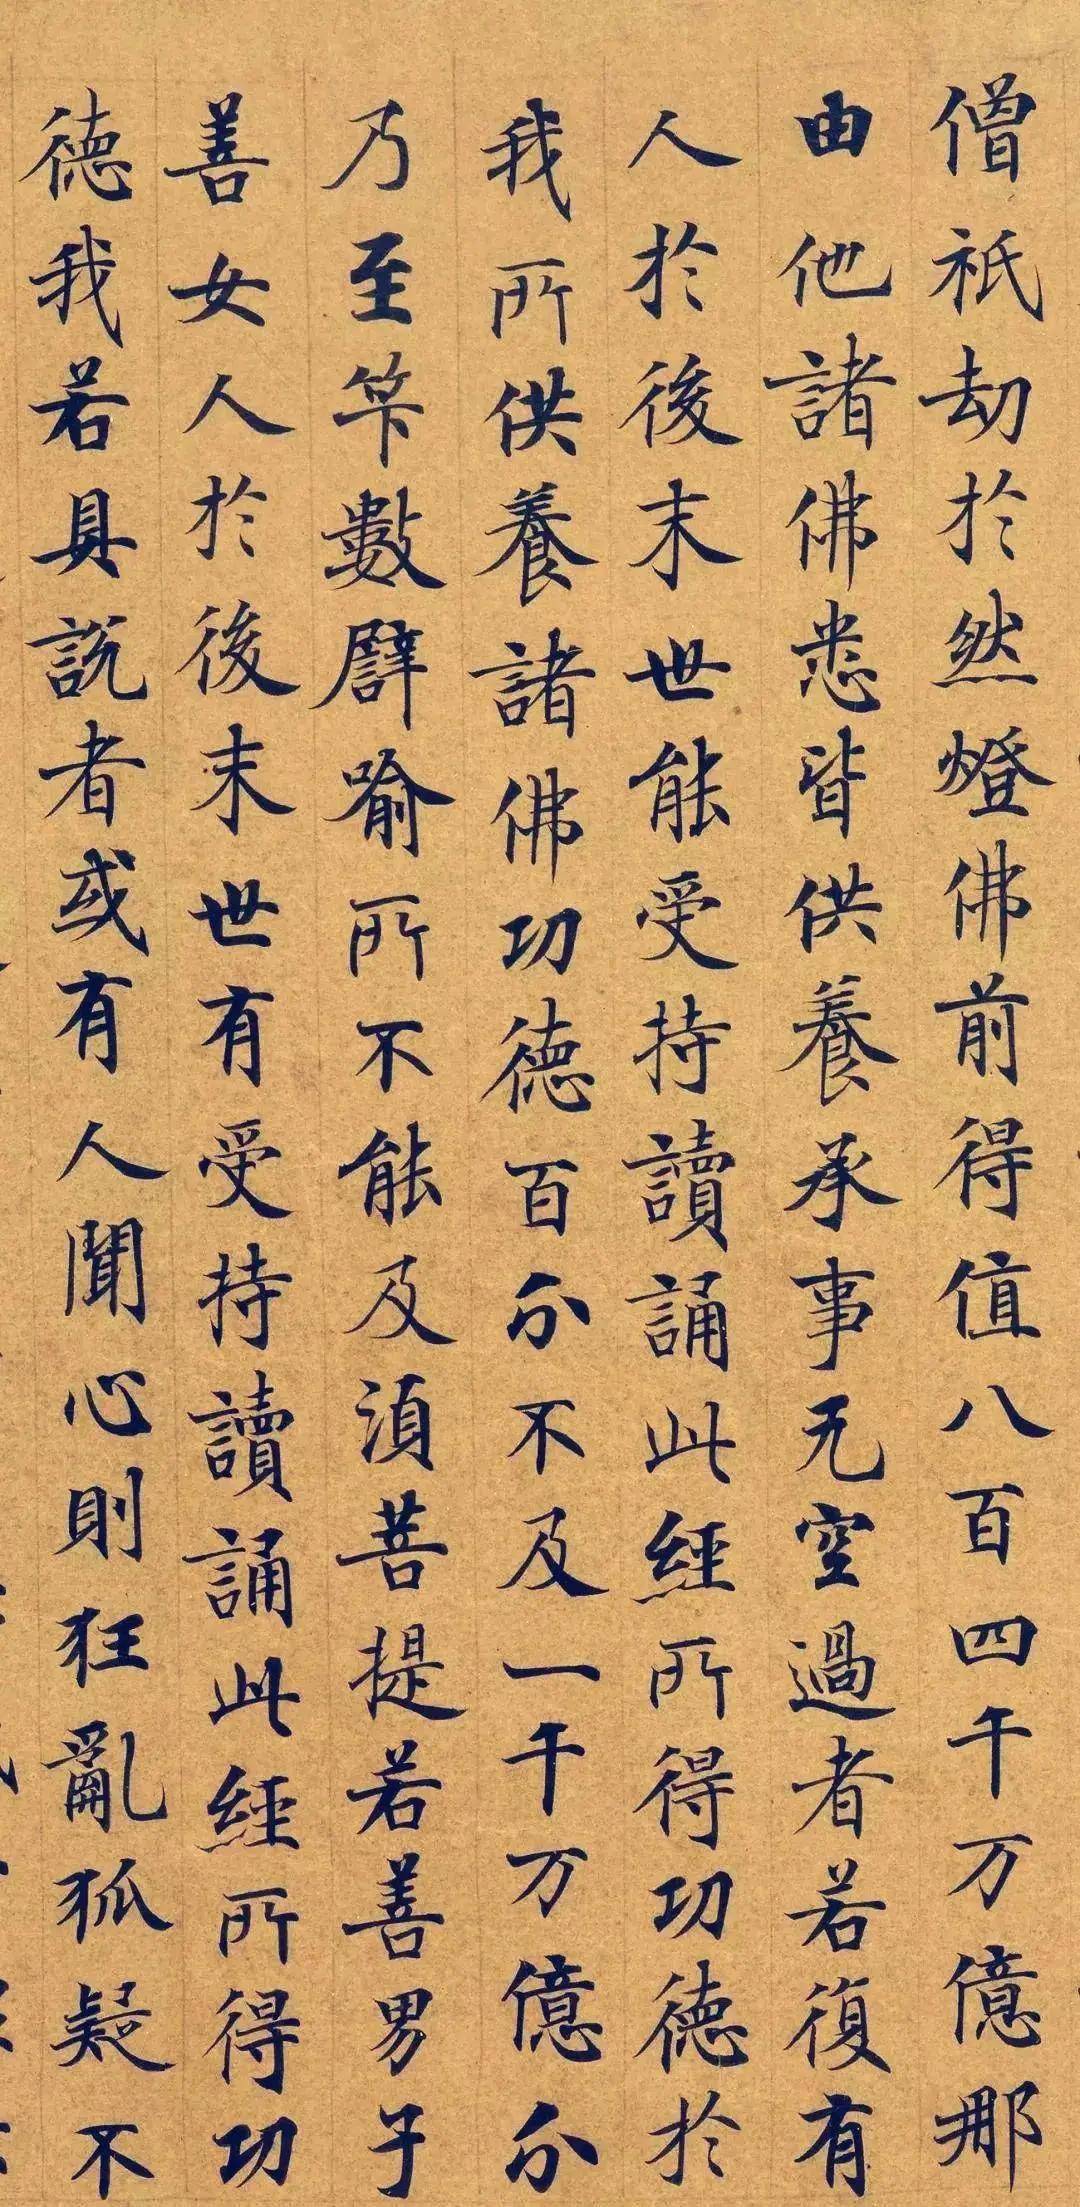 僧祇劫於然燈佛前得值八百四千万億那
由他諸佛悉皆供養承事无空過者若復有
人於後末世能受持讀誦此經所得功德於
我所供養諸佛功德百分不及一千万億分
乃至筭數譬喻所不能及須菩提若善男子
善女人於後末世有受持讀誦此經所得功
德我若具說者或有人聞心則狂亂狐疑不